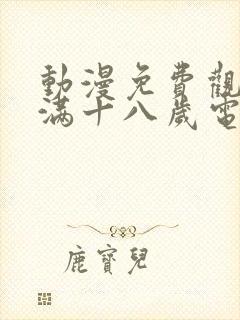 動漫免費觀
滿十八歲電
鹿寶兒